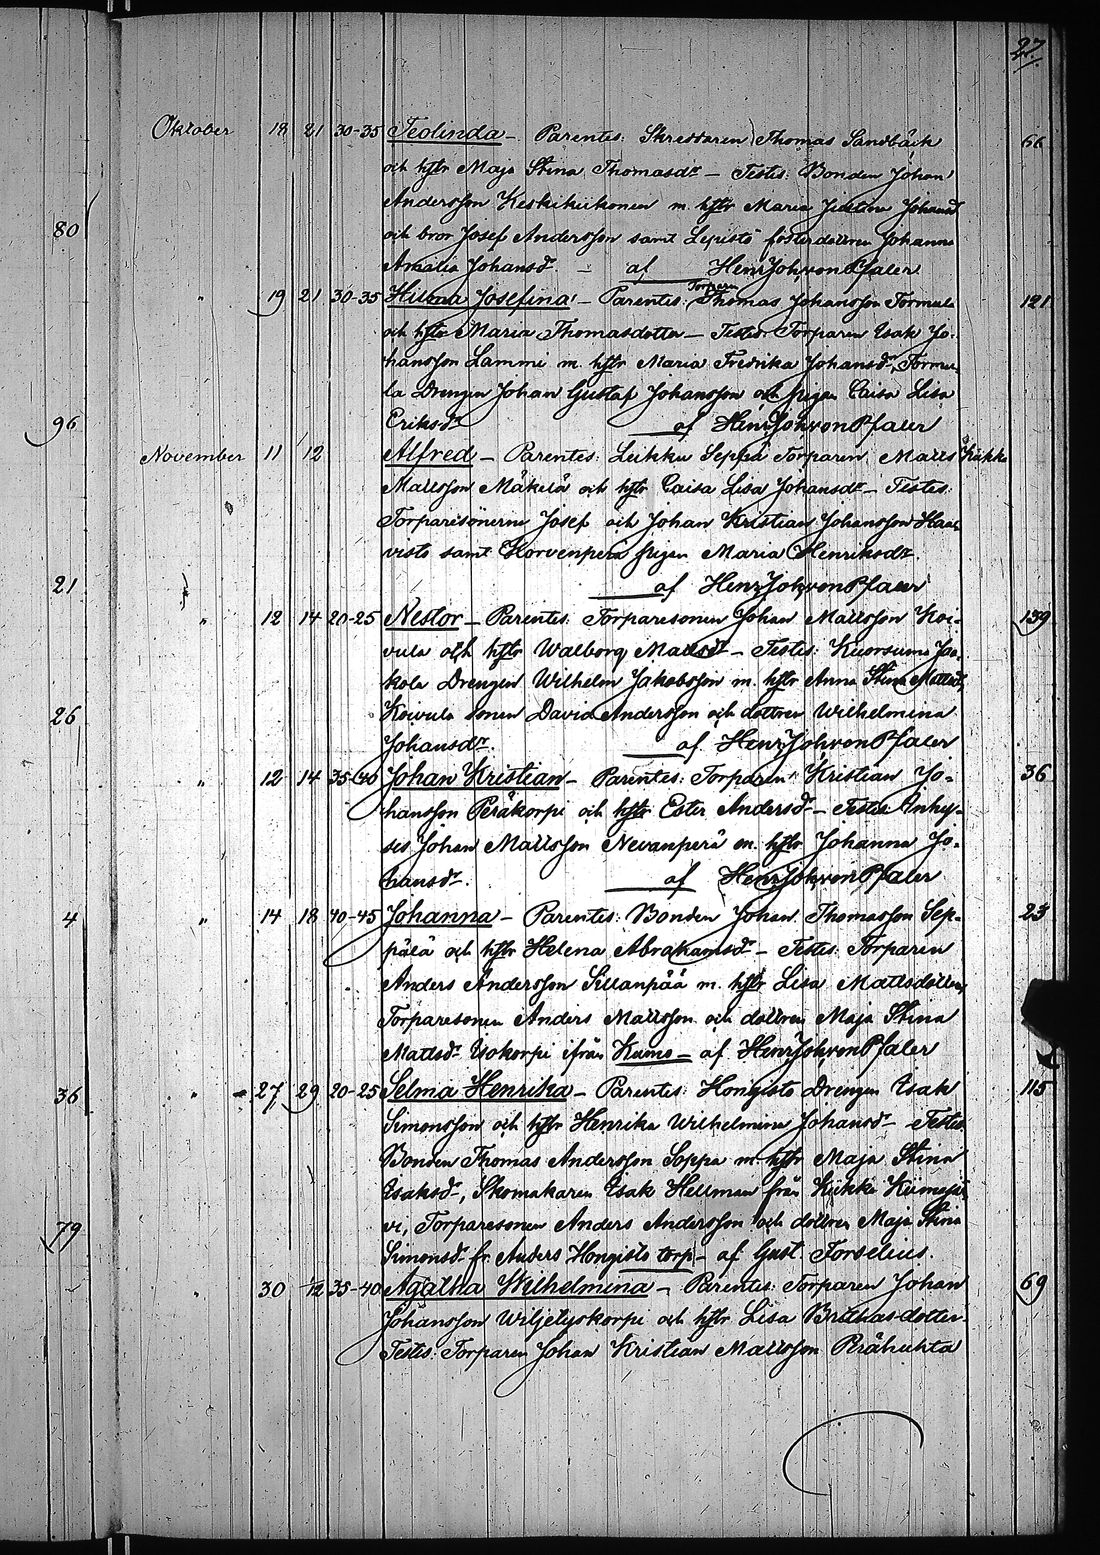 27.
Oktober 18 21 30-35 Teolinda – Parentes: Skreddaren Thomas Sandbäck 66
och hstr Maja Stina Thomasdr – Testes: Bonden Johan
Andersson Keskikiikonen m. hstr Maria Justina Johansd
och bror Josef Andersson samt Lepistö fosterdottren Johanna
80
Amalia Johansdr. – af Henr Joh von Pfaler
" 19 21 30-35 Hilma Josefina – Parentes: Torparen Thomas Johansson Tormula 121
och hstr Maria Thomasdotter – Testes: Torparen Isak Jo-
hansson Lammi m. hstr Maria Fredrika Johansdr, Tormu-
la Drengen Johan Gustaf Johansson och pigan Caisa Lisa
96
Eriksdr af Henr Joh von Pfaler
November 11 12 Alfred – Parentes: Leikku Seppä Torparen Matts Kiikka
Mattsson Mäkelä och hstr Caisa Lisa Johansdr – Testes:
Torparesönerne Josef och Johan Kristian Johansson Haa-
visto samt Korvenperä pigan Maria Henriksdr.
21
af Henr Joh von Pfaler
" 12 14 20-25 Nestor – Parentes: Torparesonen Johan Mattsson Koi- 139
vula och hstr Walborg Mattsdr – Testes: Kuorsumo Jaa-
kola Drengen Wilhelm Jakobsson m. hstr Anna Stina Mattsd,
26
Koivula sonen David Andersson och dottren Wilhelmina
Johansdr. af Henr Joh von Pfaler
" 12 14 35-40 Johan Kristian – Parentes: Torparen Kristian Jo- 36
hansson Peräkorpi och hstr Ester Andersdr – Testes Inhy-
ses Johan Mattsson Nevanperä m. hstr Johanna Jo-
hansdr. af Henr Joh von Pfaler
4
" 14 18 40-45 Johanna – Parentes: Bonden Johan Thomasson Sep- 23
pälä och hstr Helena Abrahamsdr – Testes: Torparen
Anders Andersson Sillanpää m. hstr Lisa Mattsdotter,
Torparesonen Anders Mattsson och dottren Maja Stina
Mattsdr Isokorpi ifrån Kumo – af Henr Joh von Pfaler
36
" 27 29 20-25 Selma Henrika – Parentes: Hongisto Drengen Isak 115
Simonsson och hstr Henrika Wilhelmina Johansdr – Testes
Bonden Thomas Andersson Soppa m. hstr Maja Stina
Isaksdr, Skomakaren Isak Hellman från Kiikka Kiimajä
79
vi, Torparesonen Anders Andersson och dottren Maja Stina
Simonsdr fr. Anders Hongisto torp – af Gust. Forselius.
" 30 1/12 35-40 Agatha Wilhelmina – Parentes: Torparen Johan 69
Johansson Wiljetyskorpi och hstr Lisa Brithasdotter.
Testes: Torparen Johan Kristian Mattsson Perähuhta